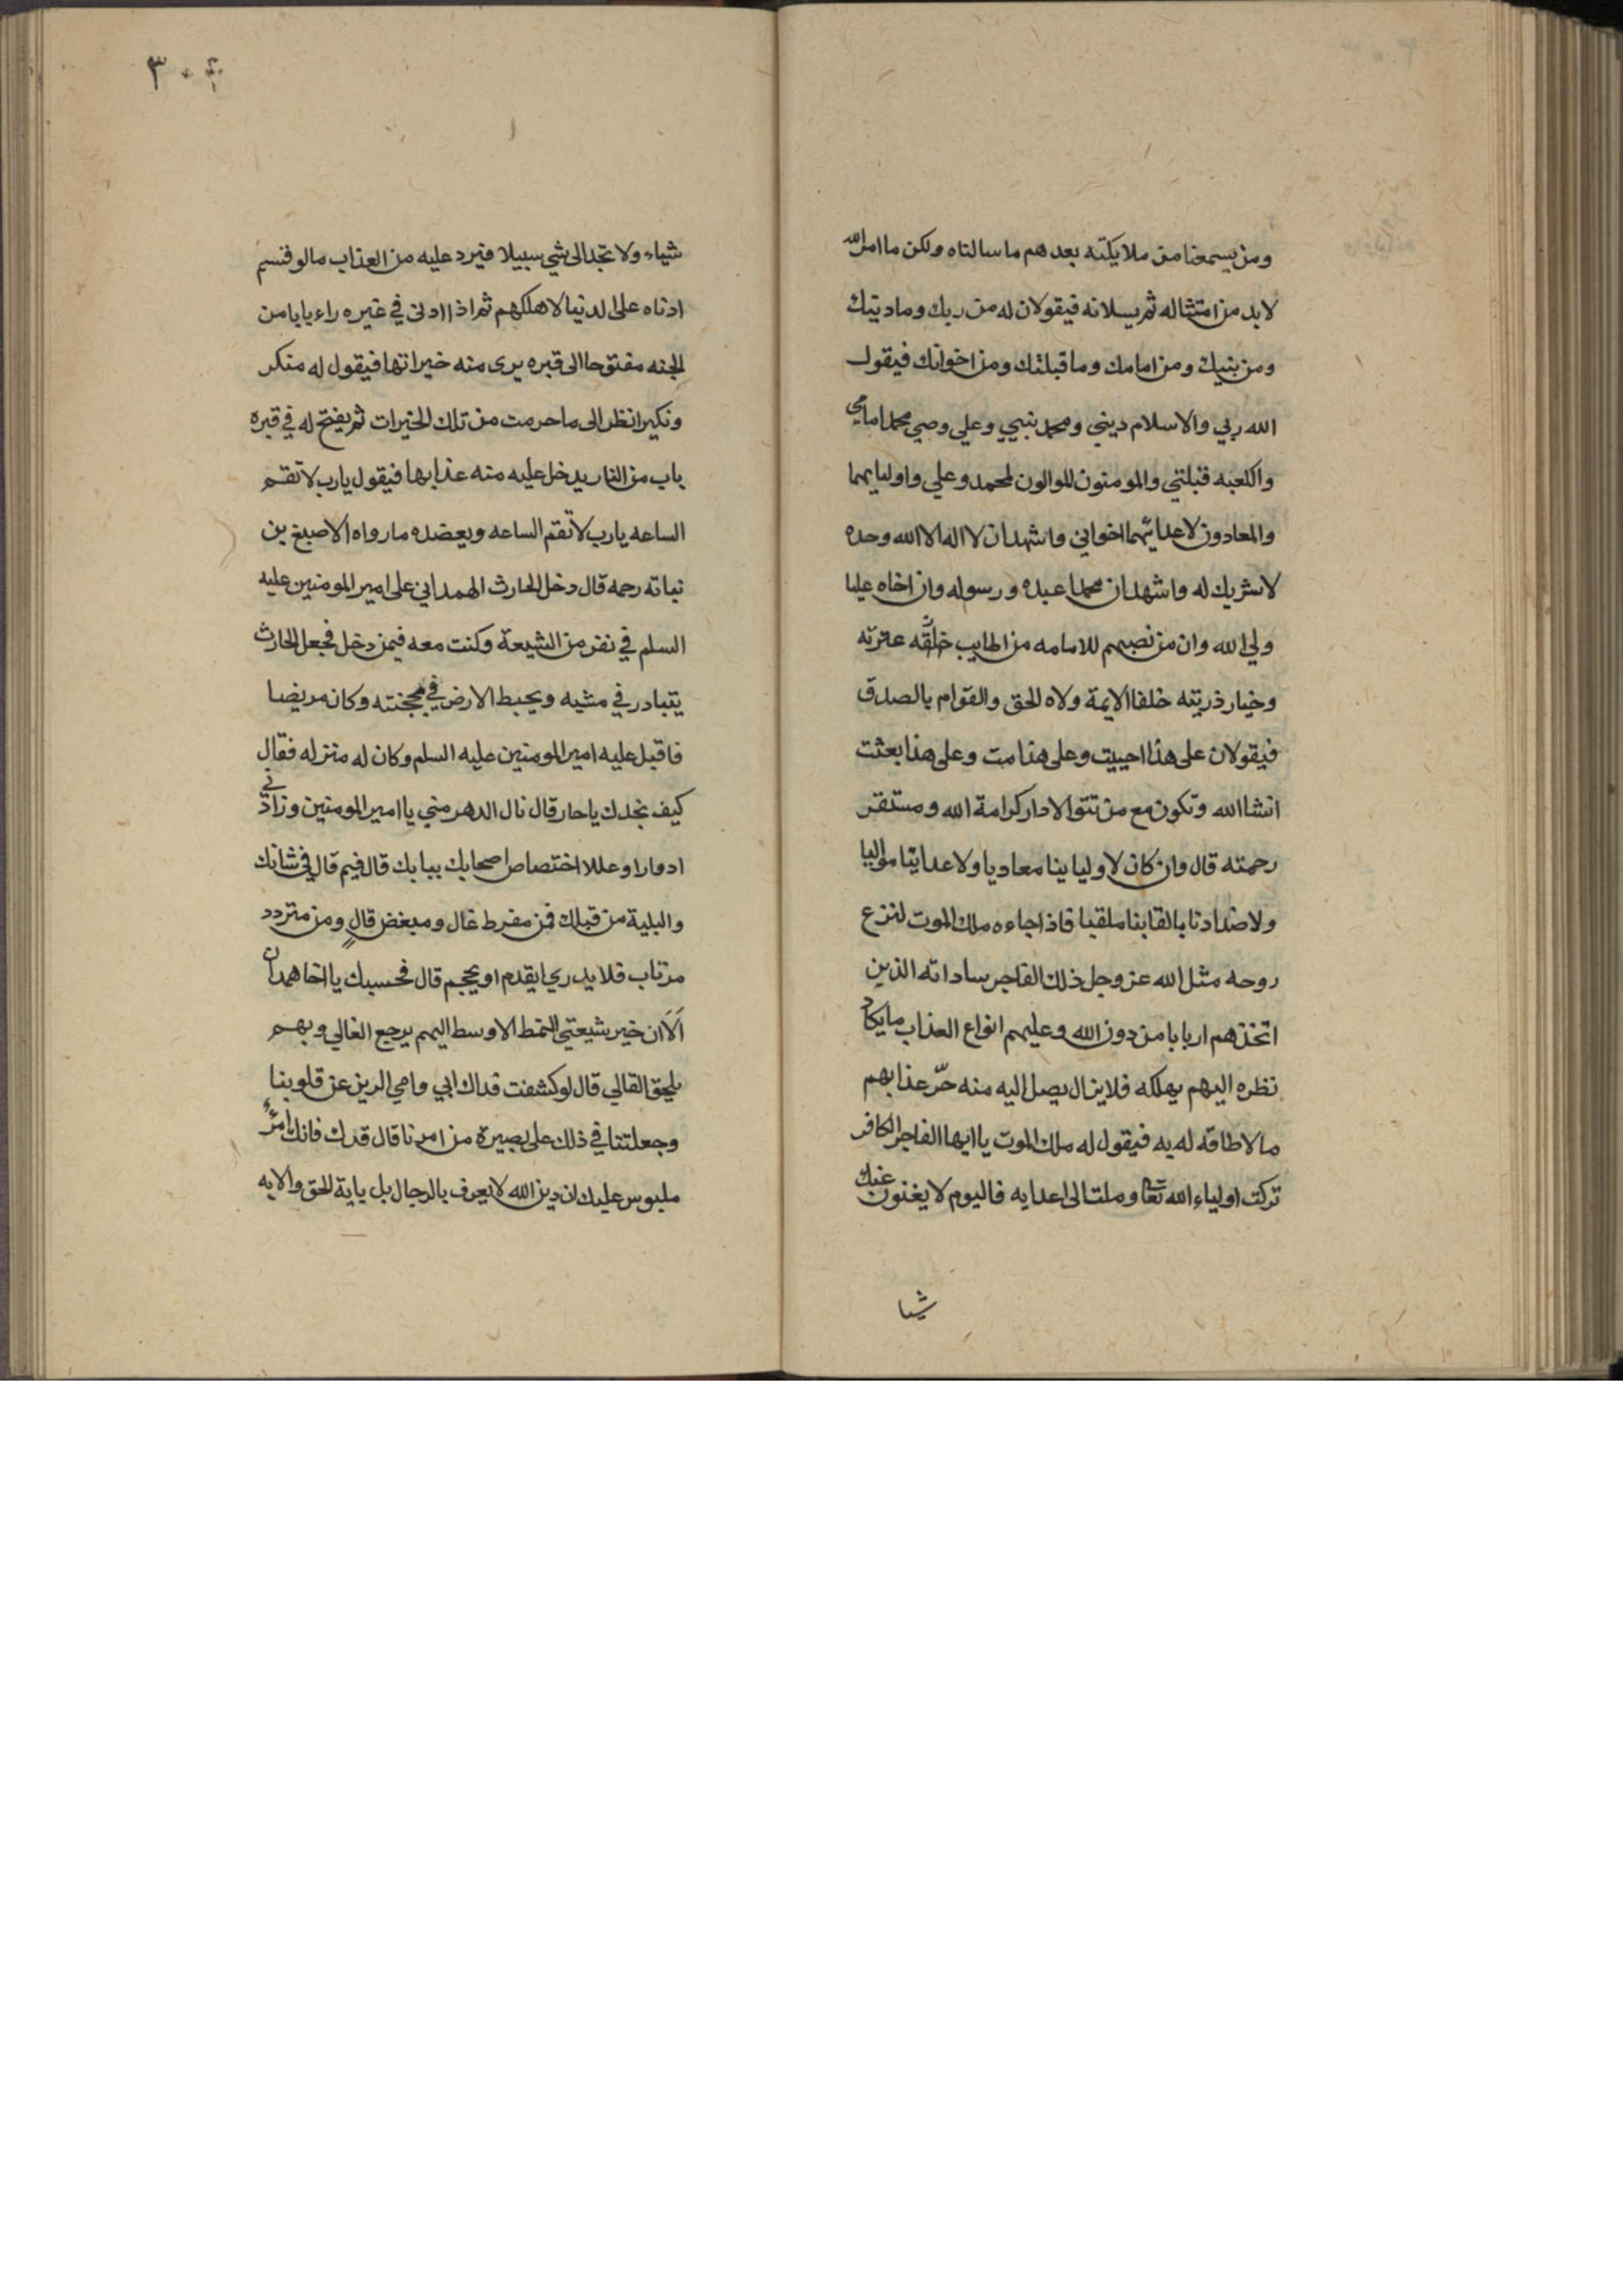 ومن يسمعنا من ملايكته بعدهم ما سالناه ولكن ما امر الله
لابد من امتثاله ثم يسلانه فيقولان له من ربك وما دينك
ومن نبيك ومن امامك وما قبلتك ومن اخوانك فيقول
الله ربي والاسلام ديني ومحمد نبيي وعلي وصي محمد امامي
والكعبه قبلتي والمومنون الموالون لمحمد وعلي واوليايهما
والمعادون لاعدايهما اخواني واشهد ان لا اله الا الله وحده
لا شريك له واشهد ان محمدا عبده ورسوله وان اخاه عليا
ولي الله وان من نصبهم للامامه من اطايب عترته
وخيار ذريته خلفا الايمة ولاه الحق والقوام بالصدق
فيقولان على هذا احييت وعلى هذا مت وعلى هذا بعثت
انشاالله وتكون مع من تتولا دار كرامة الله ومستقر
رحمته قال وان كان لاوليا ينا معاديا ولاعداينا مواليا
ولاضدادنا بالقابنا ملقبا فاذا جاءه ملك الموت لنزع
روحه مثل الله عز وجل ذلك الفاجر ساداته الذين
اتخذهم اربابا من دون الله وعليهم انواع العذاب ما يكاد
نظره اليهم يهلكه فلا يزال يصل اليه منه حرّ عذابهم
ما لا طاقه له به فيقول له ملك الموت يا ايها الفاجر الكافر
تركت اولياء الله تعا وملت الى اعدايه فاليوم لا يغنون عنك
شيا
٣٠٤
شياء ولا تجد الى شي سبيلا فيرد عليه من العذاب ما لو قسم
ادناه على الدنيا لاهلكهم ثم اذا ادلى في قبره راء بابا من
الجنه مفتوحا الى قبره يرى منه خيراتها فيقول له منكر
ونكير انظر الى ما حرمت من تلك الخيرات ثم يفتح له في قبره
باب من النار يدخل عليه منه عذابها فيقول يا رب لا تقم
الساعه يا رب لا تقم الساعه ويعضده ما رواه الاصبغ بن
نباته رحمه قال دخل الحارث الهمداني على امير المومنين عليه
السلم في نفر من الشيعة وكنت معه فيمن دخل فجعل الحارث
يتبادر في مشيه ويخبط الارض في مجنته وكان مريضا
فاقبل عليه امير المومنين عليه السلم وكان له منزله فقال
كيف نجدك يا حار قال نال الدهر مني يا امير المومنين وزادني
ادوارا وعللا اختصاص اصحابك ببابك قال فيم قال في شانك
والبلية من قبلك فمن مفرط غال ومبغض قالٍ ومن متردد
مرتاب فلا يدري ايقدم او يحجم قال فحسبك يا اخا همدان
اَلَا ان خير شيعتي النمط الاوسط اليهم يرجع الغالي وبهم
يلحق القالي قال لو كشفت فداك ابي وامي الرين عن قلوبنا
وجعلتنا في ذلك على بصيرة من امرنا قال قدك فانك امرؤ
ملبوس عليك ان دين الله لا يعرف بالرجال بل باية الحق والايه